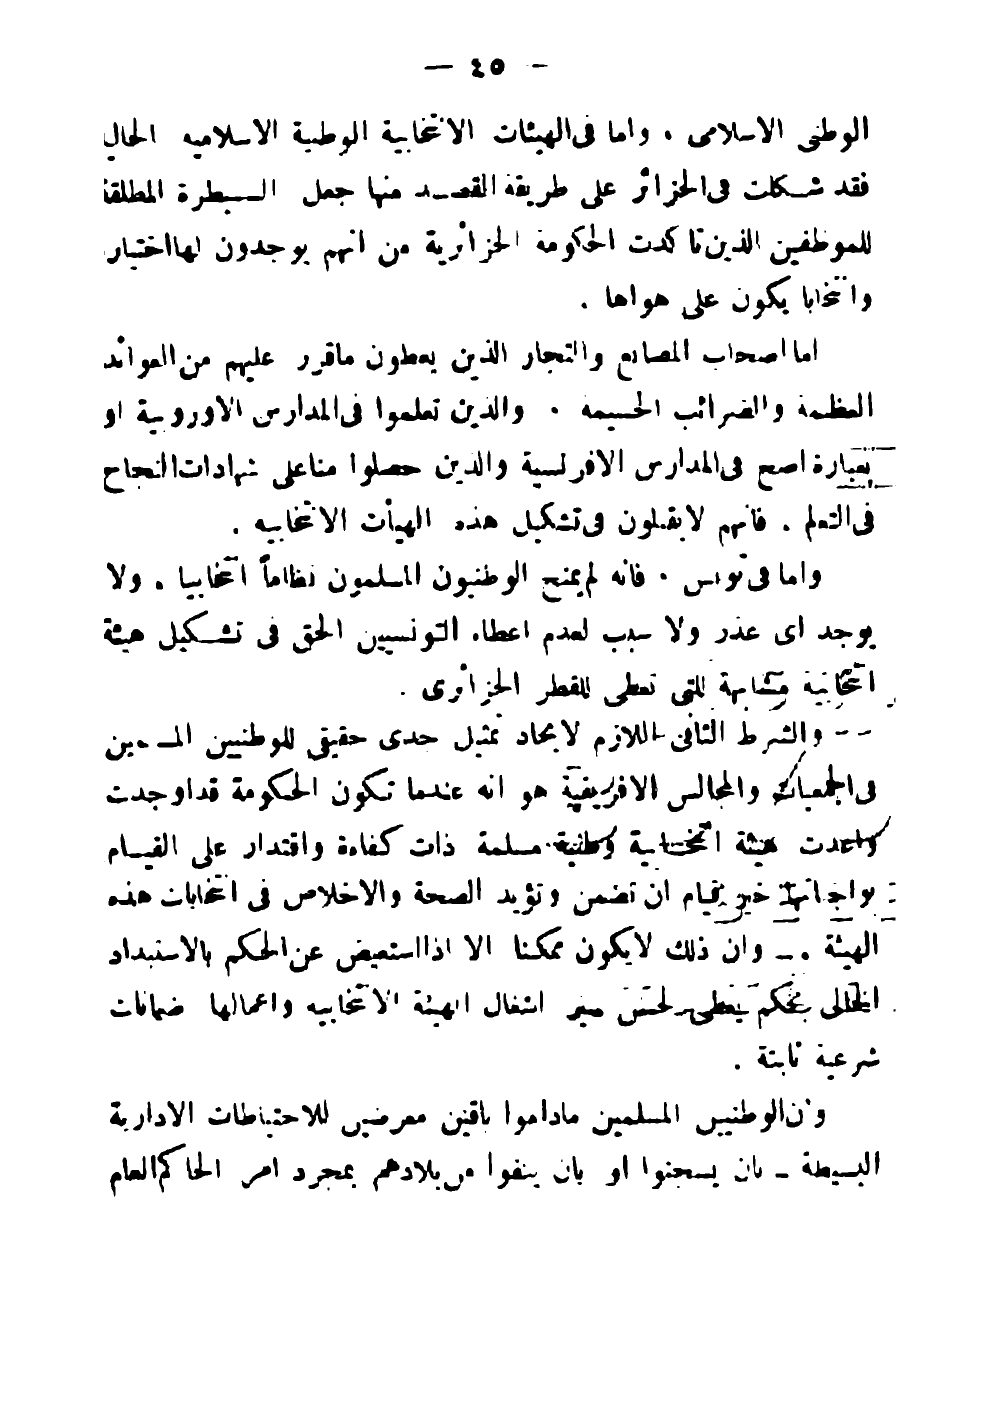 — ٤٥ —
الوطنى الاسلامى . واما فى الهيئات الانتخابية الوطنية الاسلاميه الحالي
فقد شكلت فى الجزائر على طريقة القصد منها جعل السيطرة المطلقة
للموظفين الذين تأكدت الحكومة الجزائرية من انهم يوجدون لها اختيارا
وانتخابا يكون على هواها .
اما اصحاب المصانع والتجار الذين يعطون ماقرر عليهم من العوائد
العظيمة والضرائب الجسيمة . والذين تعلموا فى المدارس الاوروبية او
بعبارة اصح فى المدارس الافرنسية والذين حصلوا منا على شهادات النجاح
فى التعلم . فانهم لا يقبلون فى تشكيل هذه الهيأت الانتخابيه .
واما فى تونس . فانه لم يمنح الوطنيون المسلمون نظاماً انتخابيا . ولا
يوجد اى عذر ولا سبب لعدم اعطاء التونسيين الحق فى تشكيل هيئة
انتخابية مشابهة للتى تعطى للقطر الجزائرى .
-- والشرط الثانى اللازم لايجاد تمثيل جدى حقيقى للوطنيين المسلمين
فى الجمعيات والمجالس الافريقية هو انه عندما تكون الحكومة قد اوجدت
واعدت هيئة انتخابية وطنية مسلمة ذات كفاءة واقتدار على القيام
بواجباتها خير قيام ان تضمن وتؤيد الصحة والاخلاص فى انتخابات هذه
الهيئة . — وان ذلك لايكون ممكنا الا اذا استعيض عن الحكم بالاستبداد
الحالى بحكم يعطى لحسن سير اشغال الهيئة الانتخابيه واعمالها ضمانات
شرعية ثابتة .
وان الوطنيين المسلمين ماداموا باقين معرضين للاحتياطات الادارية
البسيطة — بان يسجنوا او بان ينفوا من بلادهم بمجرد امر الحاكم العام